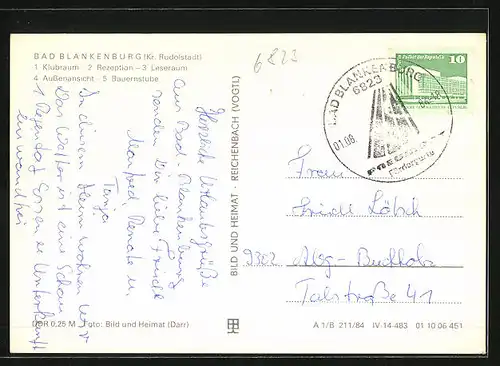 BAD BLANKENBURG (Kr. Rudolstadt)
1 Klubraum 2 Rezeption – 3 Leseraum
4 Außenansicht · 5 Bauernstube
6823
Herzliche Urlaubsgrüße
aus Bad-Blankenburg
senden Dir liebe Friedl
Manfred, Renate u.
Tanja
In diesem Heim wohnen wir
Das Wetter ist ans Schau
1 Regentag Essen u Unterkunft
einwandfrei
DDR 0,25 M Foto: Bild und Heimat (Darr)
BILD UND HEIMAT · REICHENBACH (VOGTL)
BAD BLANKENBURG
6823
01.08.
10
Frau
Friedl Lötsch
9302 Abg-Buchholz
Talstraße 41
A 1/B 211/84 IV-14-483 01 10 06 451